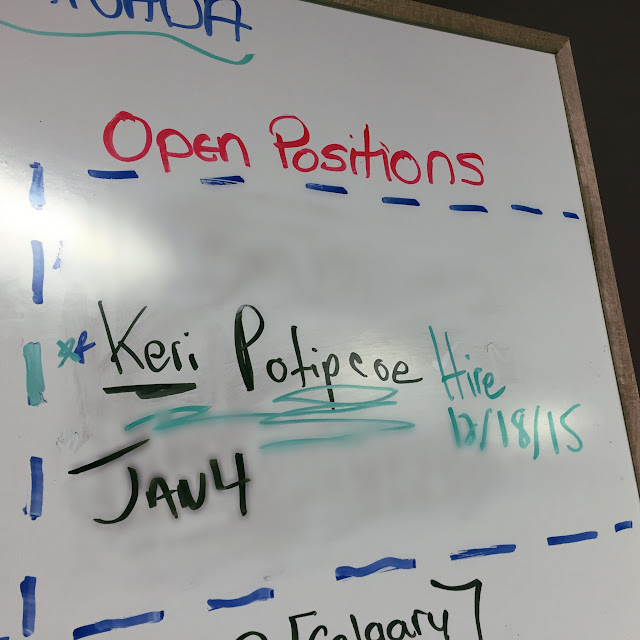 Open Positions
** Keri Potipcoe Hire
12/18/15
JAN 4
[Calgary]